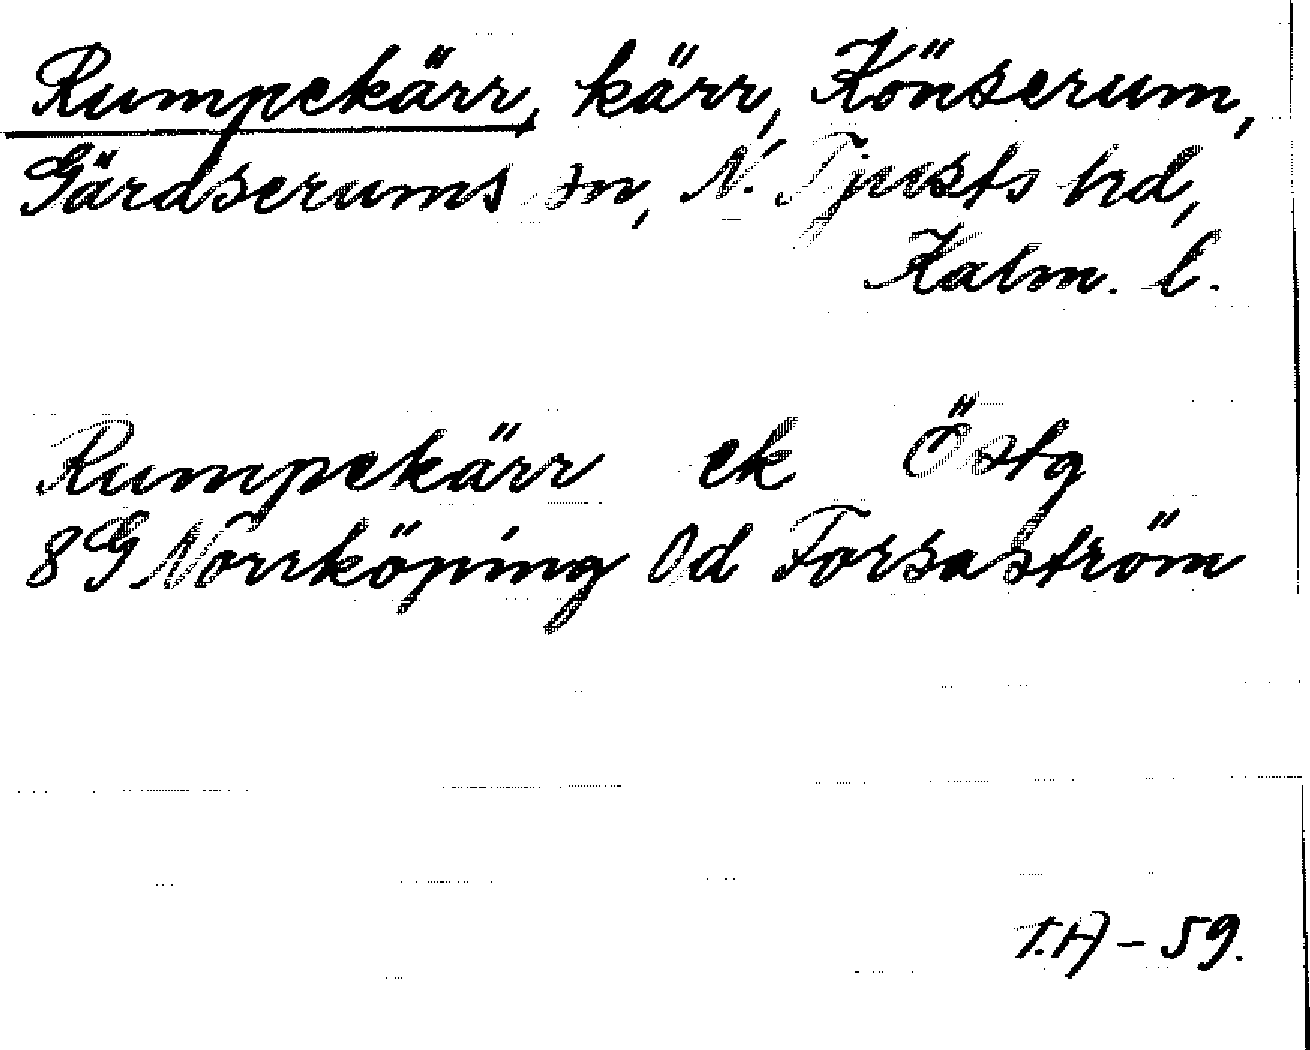 Rumpekärr, kärr, Könserum,
Gärdserums sn, N. Tjusts hd,
Kalm. l.
Rumpekärr ek Östg
8G Norrköping Od Forsaström
T.A - 59.